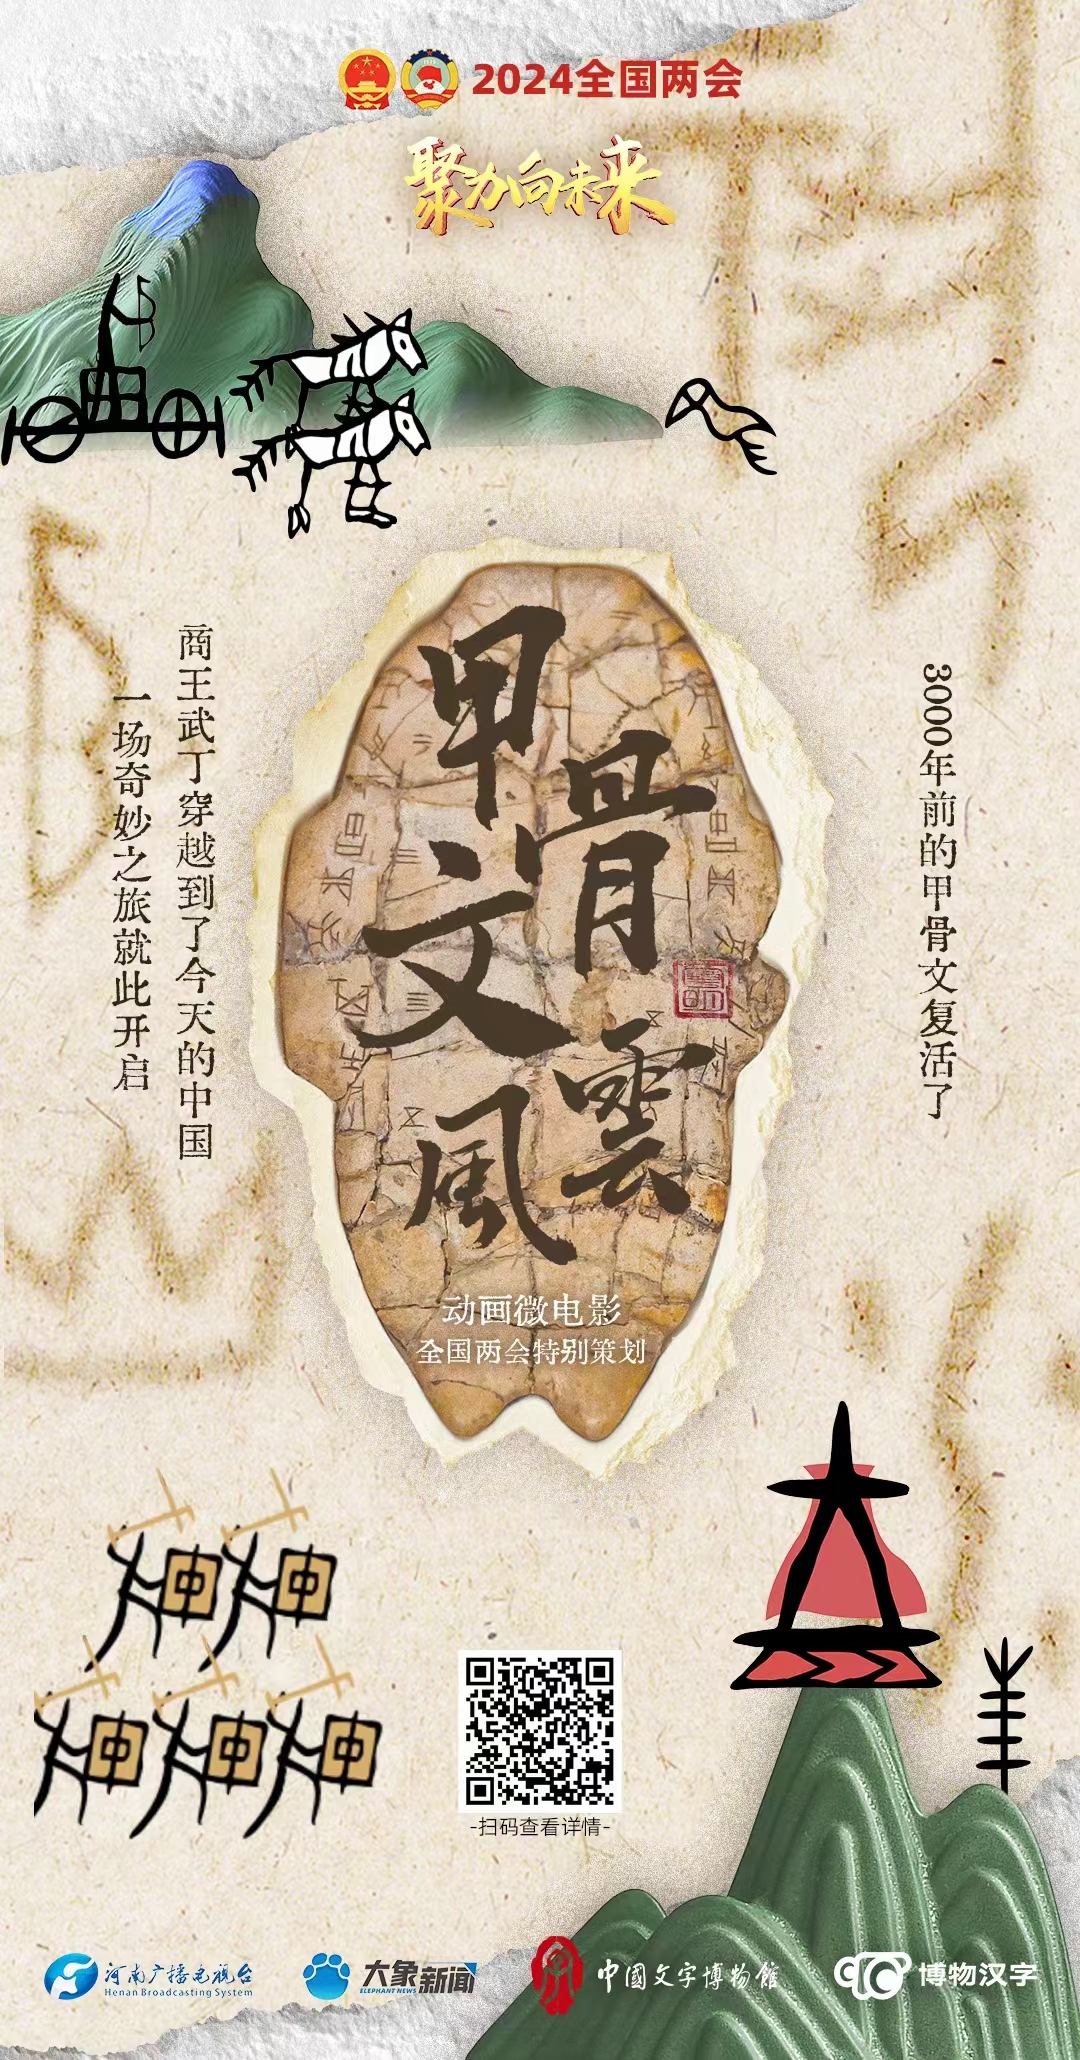 2024全国两会
聚力向未来
3000年前的甲骨文复活了
甲骨文
風雲
商王武丁穿越到了今天的中国
一场奇妙之旅就此开启
动画微电影
全国两会特别策划
-扫码查看详情-
河南广播电视台
Henan Broadcasting System
大象新闻
ELEPHANT NEWS
中国文字博物館
博物汉字